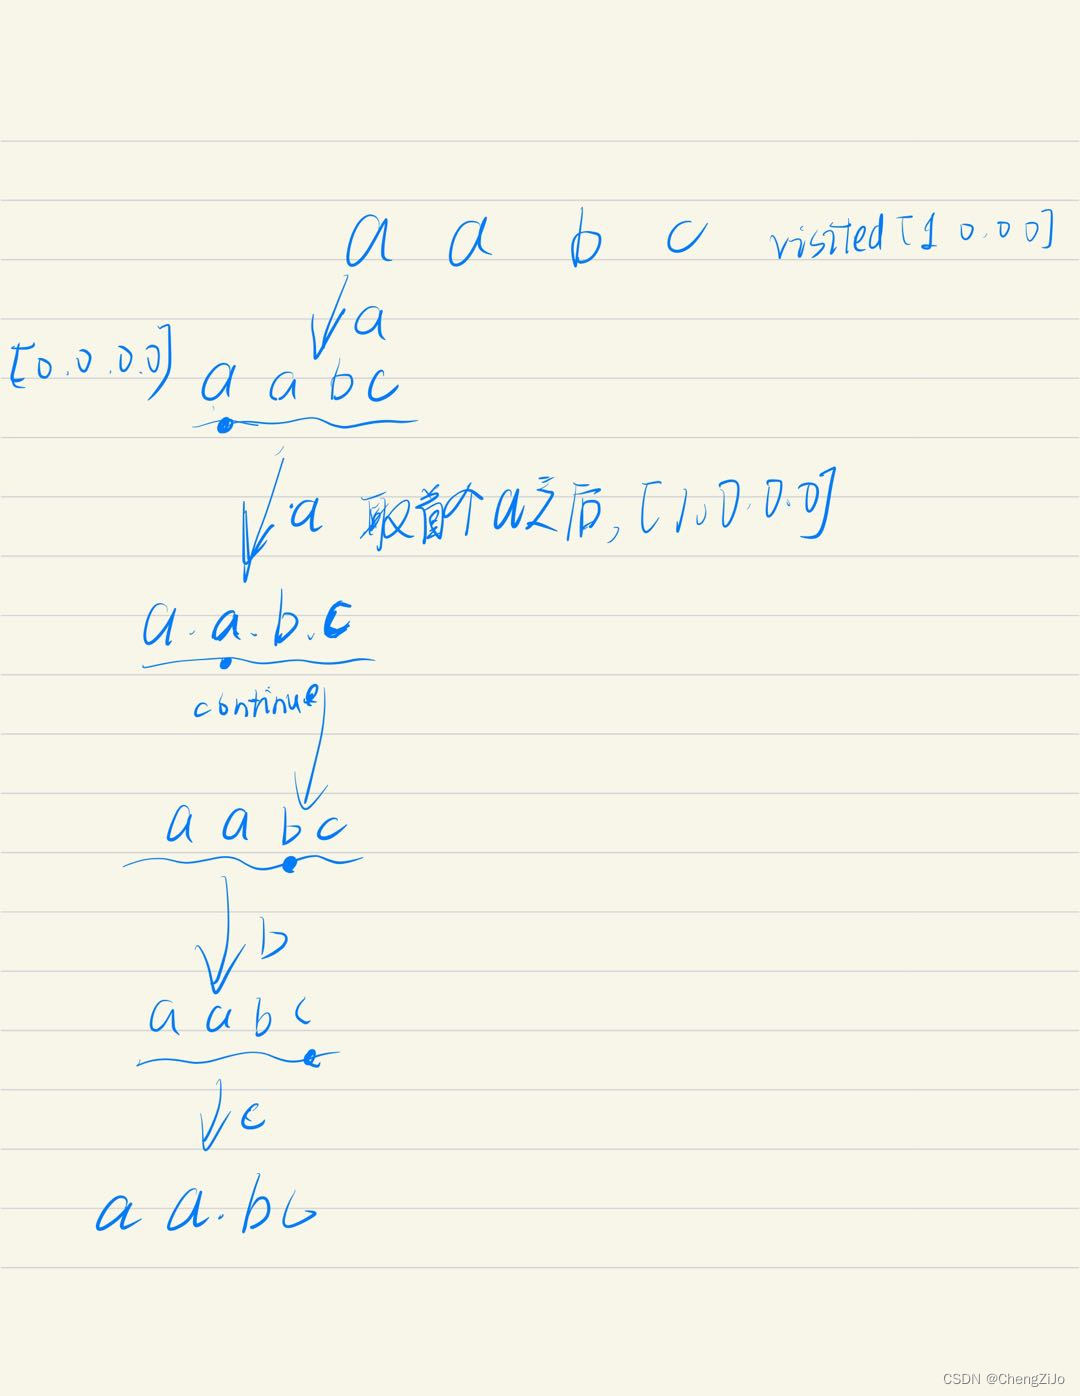 a a b c visited [1 0.0 0]
a
[0.0.0.0] a a b c
a 取首个a之后, [1.0.0.0]
a.a.b.c
continue
a a b c
b
a a b c
c
a a.b c
CSDN @ChengZiJo